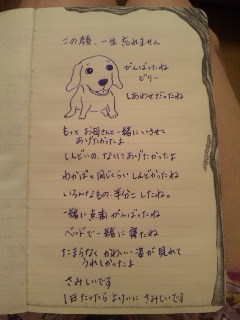 この顔、一生忘れません
がんばったね
ビリー
しあわせだったね
もっと お母さんと一緒にいさせて
あげたかったよ
しんどいの、なくしてあげたかったよ
わかばと同じくらい しんどかったね
いろんなもの、半分こ したね。
一緒に点滴 がんばったね
ベッドで一緒に寝たね
たまらなく かわいい姿が見れて
うれしかったよ
さみしいです
1日たったら よけいに さみしいです